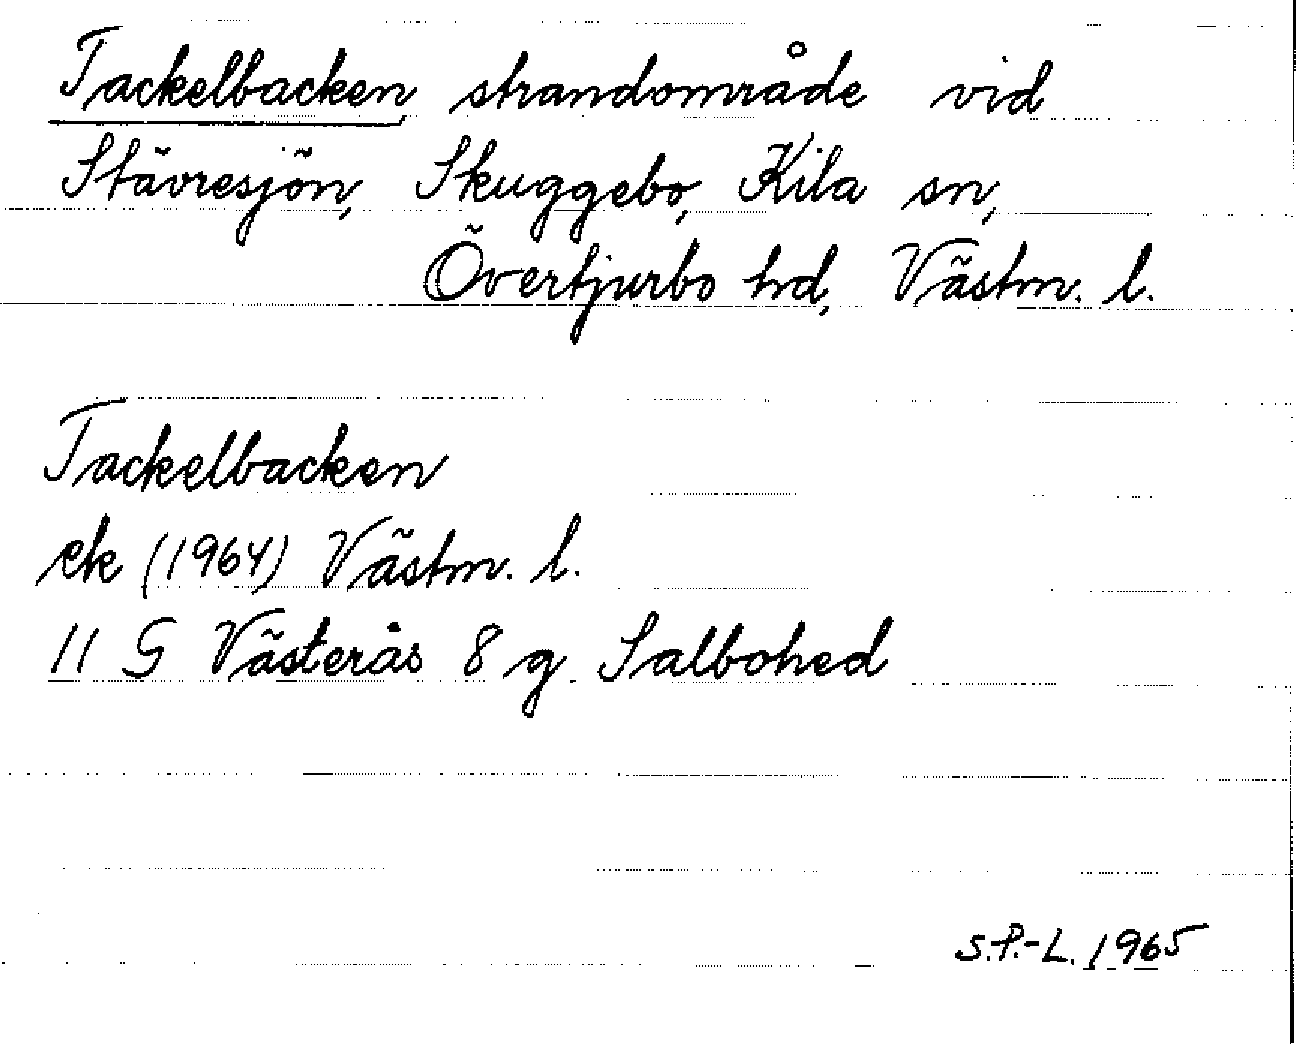 Tackelbacken strandområde vid
Stävresjön, Skuggebo, Kila sn,
Övertjurbo hd, Västm. l.
Tackelbacken
ek (1964) Västm. l.
11 G Västerås 8 g Salbohed
S.P.-L. 1965